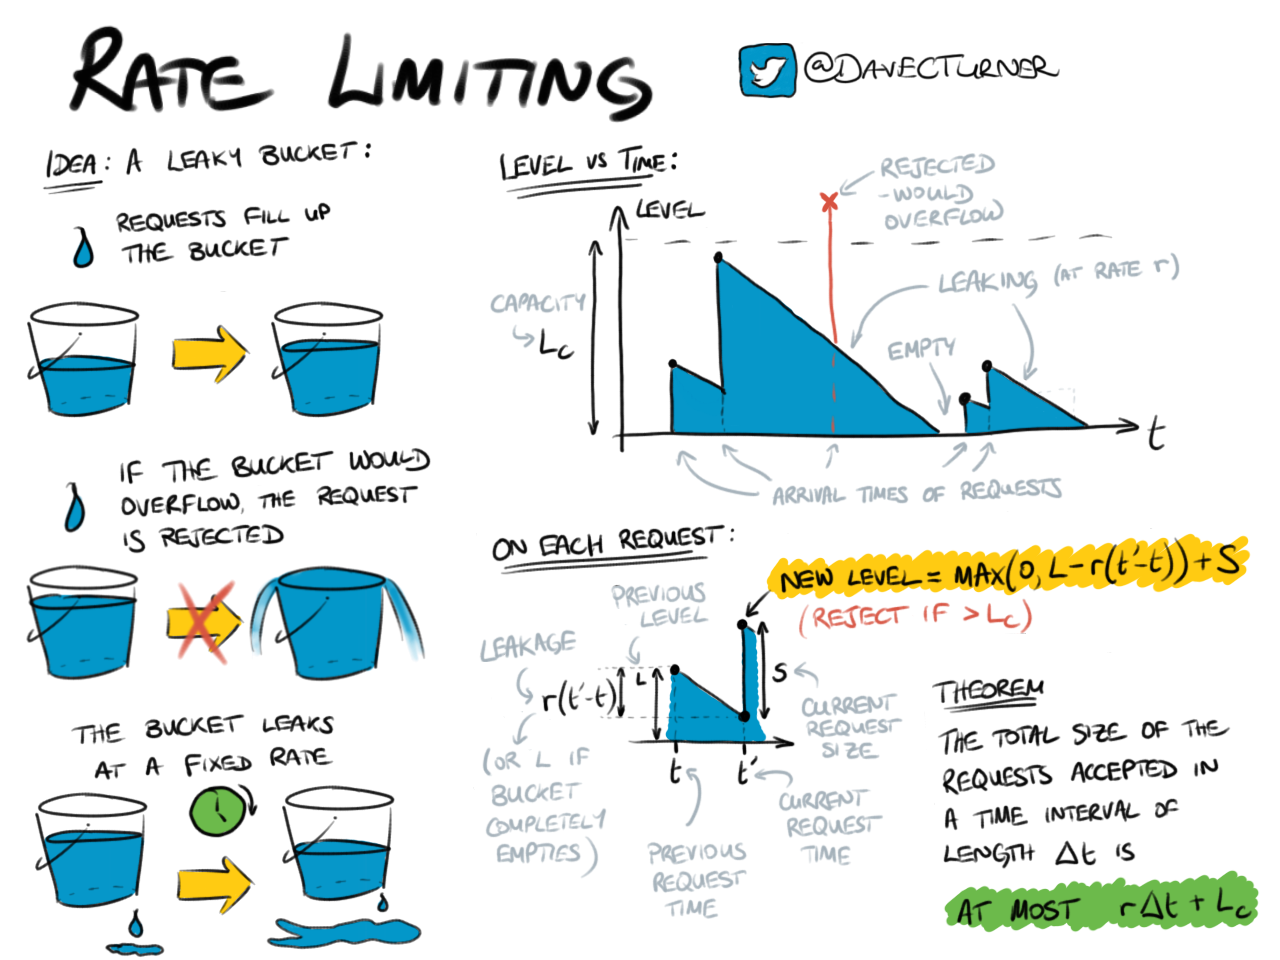 RATE LIMITING
@DAVECTURNER
IDEA: A LEAKY BUCKET:
REQUESTS FILL UP
THE BUCKET
IF THE BUCKET WOULD
OVERFLOW, THE REQUEST
IS REJECTED
THE BUCKET LEAKS
AT A FIXED RATE
LEVEL VS TIME:
REJECTED
-WOULD
OVERFLOW
LEVEL
LEAKING (AT RATE r)
CAPACITY
Lc
EMPTY
t
ARRIVAL TIMES OF REQUESTS
ON EACH REQUEST:
NEW LEVEL = MAX(0, L-r(t'-t))+S
(REJECT IF >Lc)
PREVIOUS
LEVEL
LEAKAGE
r(t'-t)
L
S
(OR L IF
BUCKET
COMPLETELY
EMPTIES)
CURRENT
REQUEST
SIZE
t
t'
PREVIOUS
REQUEST
TIME
CURRENT
REQUEST
TIME
THEOREM
THE TOTAL SIZE OF THE
REQUESTS ACCEPTED IN
A TIME INTERVAL OF
LENGTH Δt IS
AT MOST rΔt + Lc